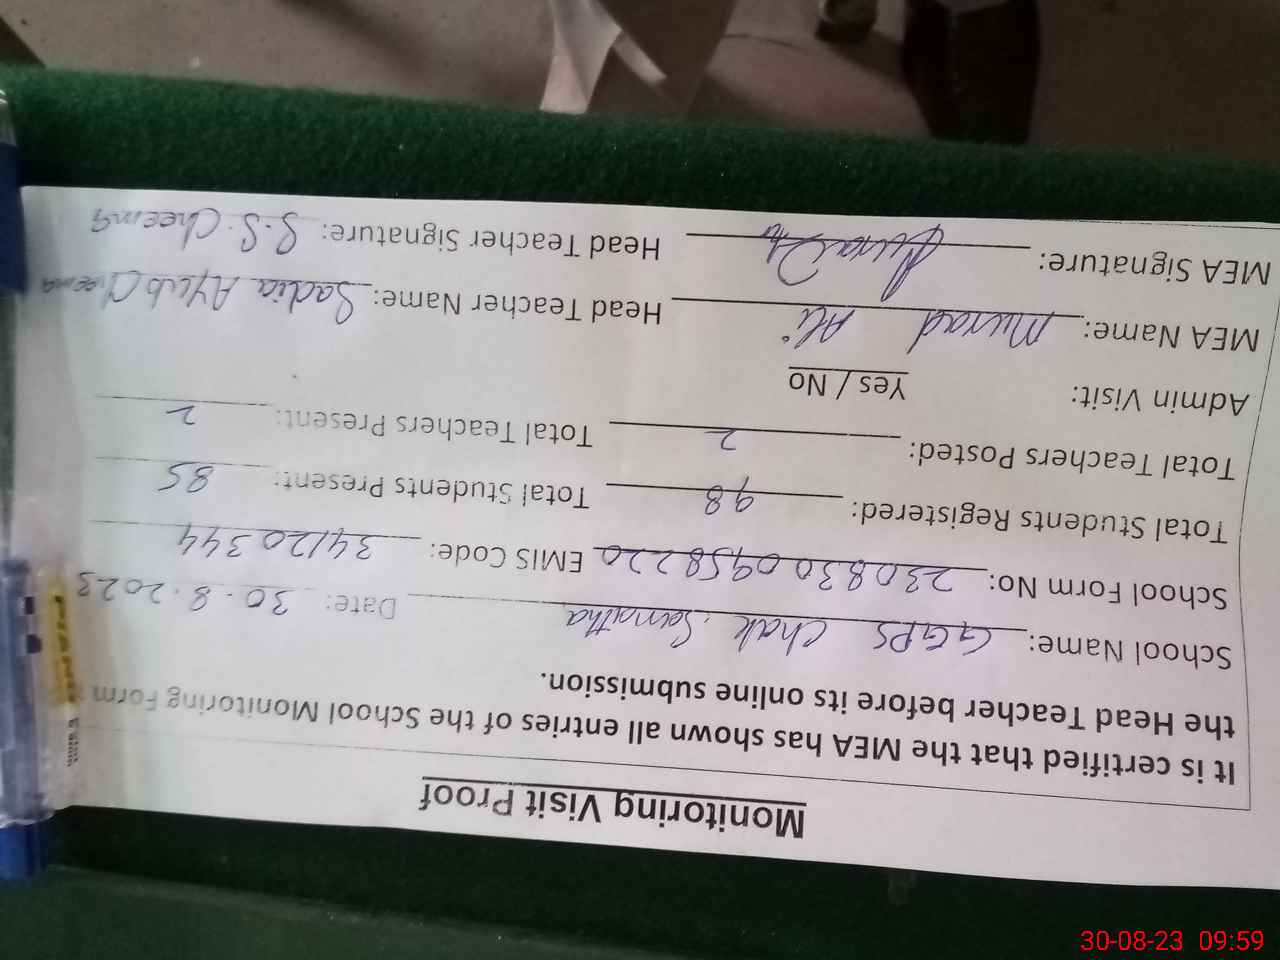 Monitoring Visit Proof
It is certified that the MEA has shown all entries of the School Monitoring Form
the Head Teacher before its online submission.
School Name: GGPS Chak Samotha Date: 30.8.2023
School Form No: 2308300958220 EMIS Code: 34120344
Total Students Registered: 98 Total Students Present: 85
Total Teachers Posted: 2 Total Teachers Present: 2
Admin Visit: Yes / No
MEA Name: Murad Ali Head Teacher Name: Sadia Ayub Cheema
MEA Signature: Head Teacher Signature: S.S. Cheema
30-08-23 09:59